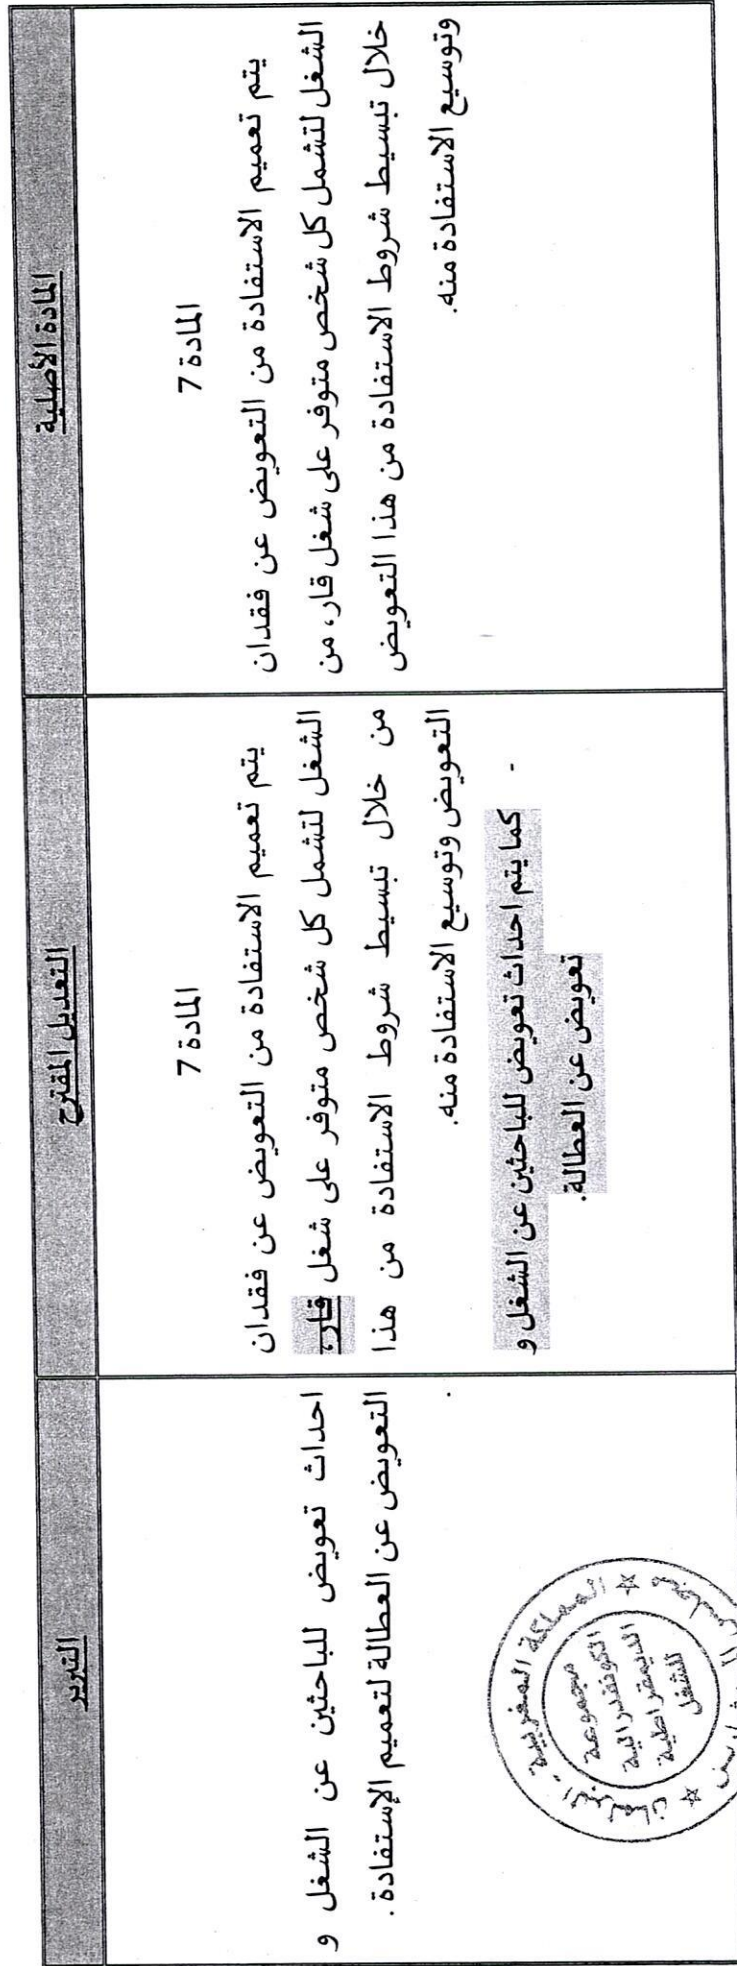 المادة الأصلية
المادة 7
يتم تعميم الاستفادة من التعويض عن فقدان
الشغل لتشمل كل شخص متوفر على شغل قار، من
خلال تبسيط شروط الاستفادة من هذا التعويض
وتوسيع الاستفادة منه.
التعديل المقترح
المادة 7
يتم تعميم الاستفادة من التعويض عن فقدان
الشغل لتشمل كل شخص متوفر على شغل قار،
من خلال تبسيط شروط الاستفادة من هذا
التعويض وتوسيع الاستفادة منه.
- كما يتم احداث تعويض للباحثين عن الشغل و
تعويض عن العطالة.
التبرير
احداث تعويض للباحثين عن الشغل و
التعويض عن العطالة لتعميم الإستفادة.
المملكة المغربية - البرلمان
مجموعة
الكونفدرالية
الديمقراطية
للشغل